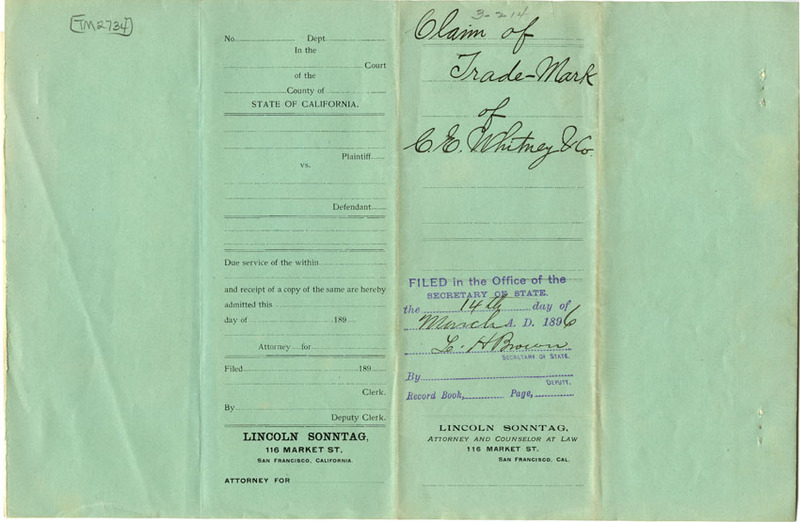 [TM2734]
No. Dept.
In the
Court
of the
County of
STATE OF CALIFORNIA.
Plaintiff
vs.
Defendant
Due service of the within
and receipt of a copy of the same are hereby
admitted this
day of 189
Attorney for
Filed 189
Clerk.
By
Deputy Clerk.
LINCOLN SONNTAG,
116 MARKET ST.
SAN FRANCISCO, CALIFORNIA.
ATTORNEY FOR
3-214
Claim of
Trade-Mark
of
C.E. Whitney & Co.
FILED in the Office of the
SECRETARY OF STATE.
the 14th day of
March A. D. 1896
L. H Brown
SECRETARY OF STATE.
By
DEPUTY.
Record Book, Page,
LINCOLN SONNTAG,
ATTORNEY AND COUNSELOR AT LAW
116 MARKET ST.
SAN FRANCISCO, CAL.